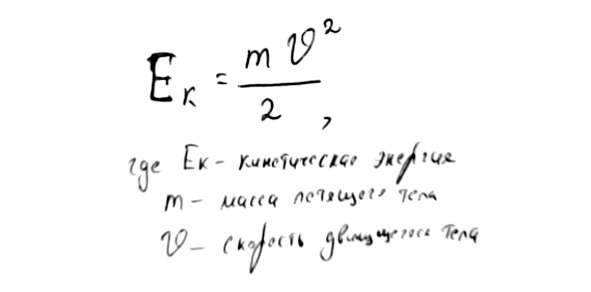 Eк = mv²/2,
где Eк - кинетическая энергия
m - масса летящего тела
v - скорость движущегося тела